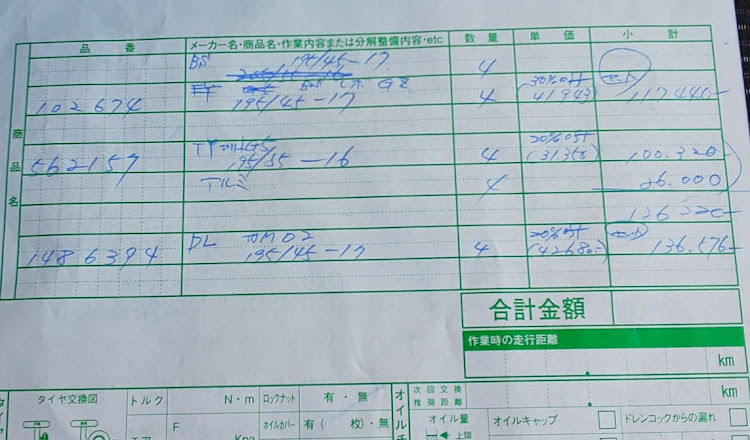 品 番 メーカー名・商品名・作業内容または分解整備内容・etc 数 量 単 価 小 計
BS 195/45-17 4
30%off セット
102674 195/45-17 4 (41943) 117440-
商品名
20%off
562157 195/55-16 4 (31350) 100.320-
アルミ 4 26.000
126320-
DL 20%off セット
1486394 195/45-17 4 (42680-) 136.576-
合計金額
作業時の走行距離
km
タイヤ交換図 トルク N・m ロックナット 有・無 次回交換推奨距離 km
F ホイルカバー 有( 枚)・無 オイル量 オイルキャップ ドレンコックからの漏れ
Kpa 上限